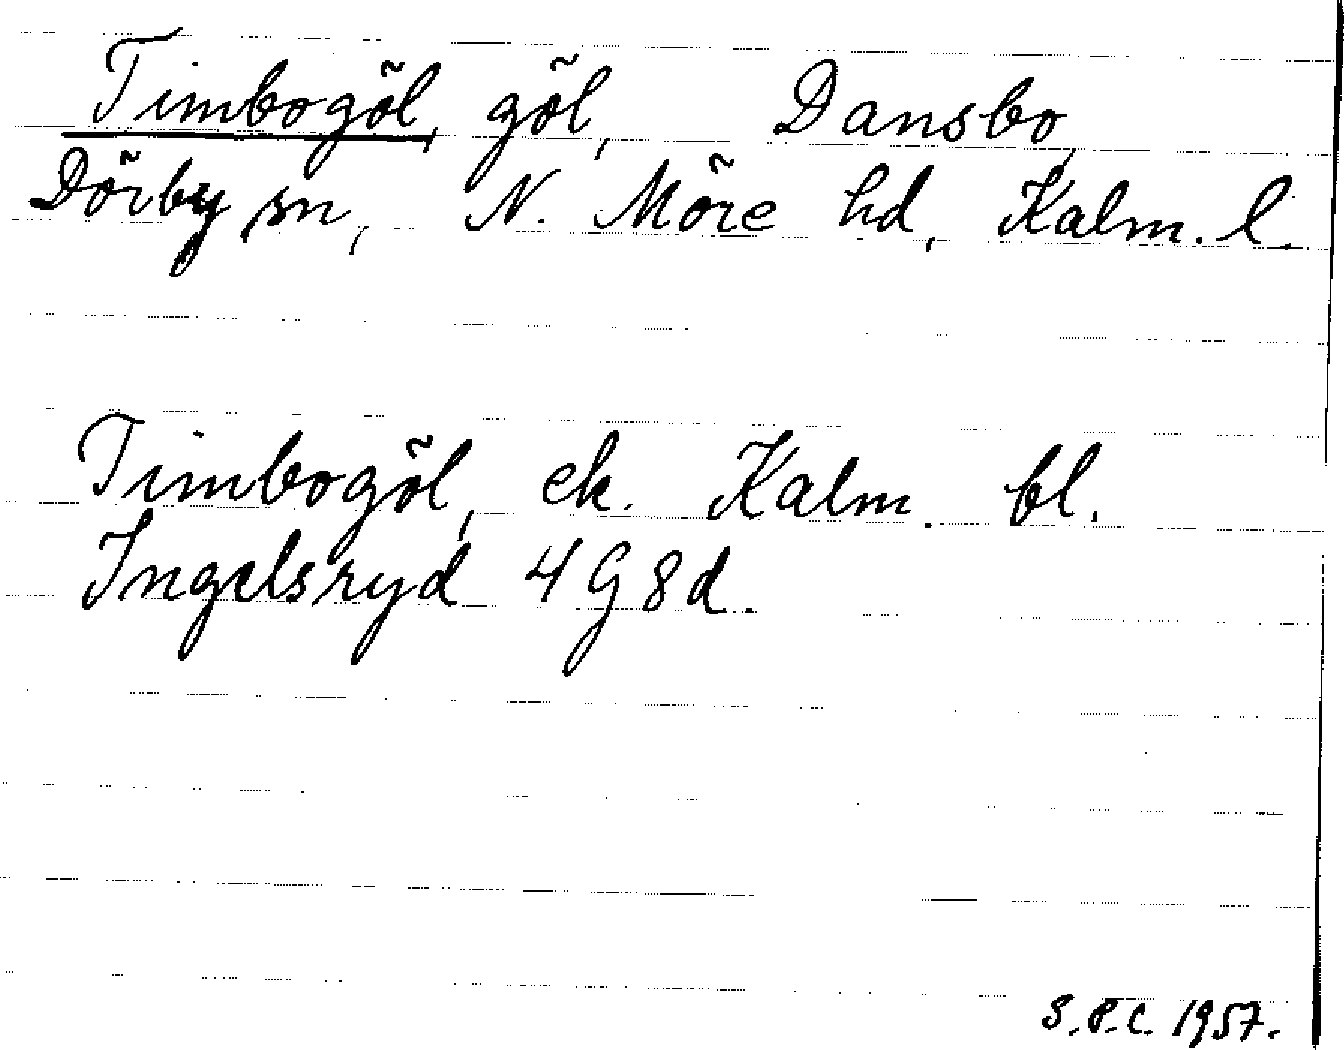 Timbogöl, göl, Dansbo,
Dörby sn, N. Möre hd, Kalm. l.
Timbogöl, ek. Kalm. bl.
Ingelsryd 4 G 8 d.
S.P.C. 1957.